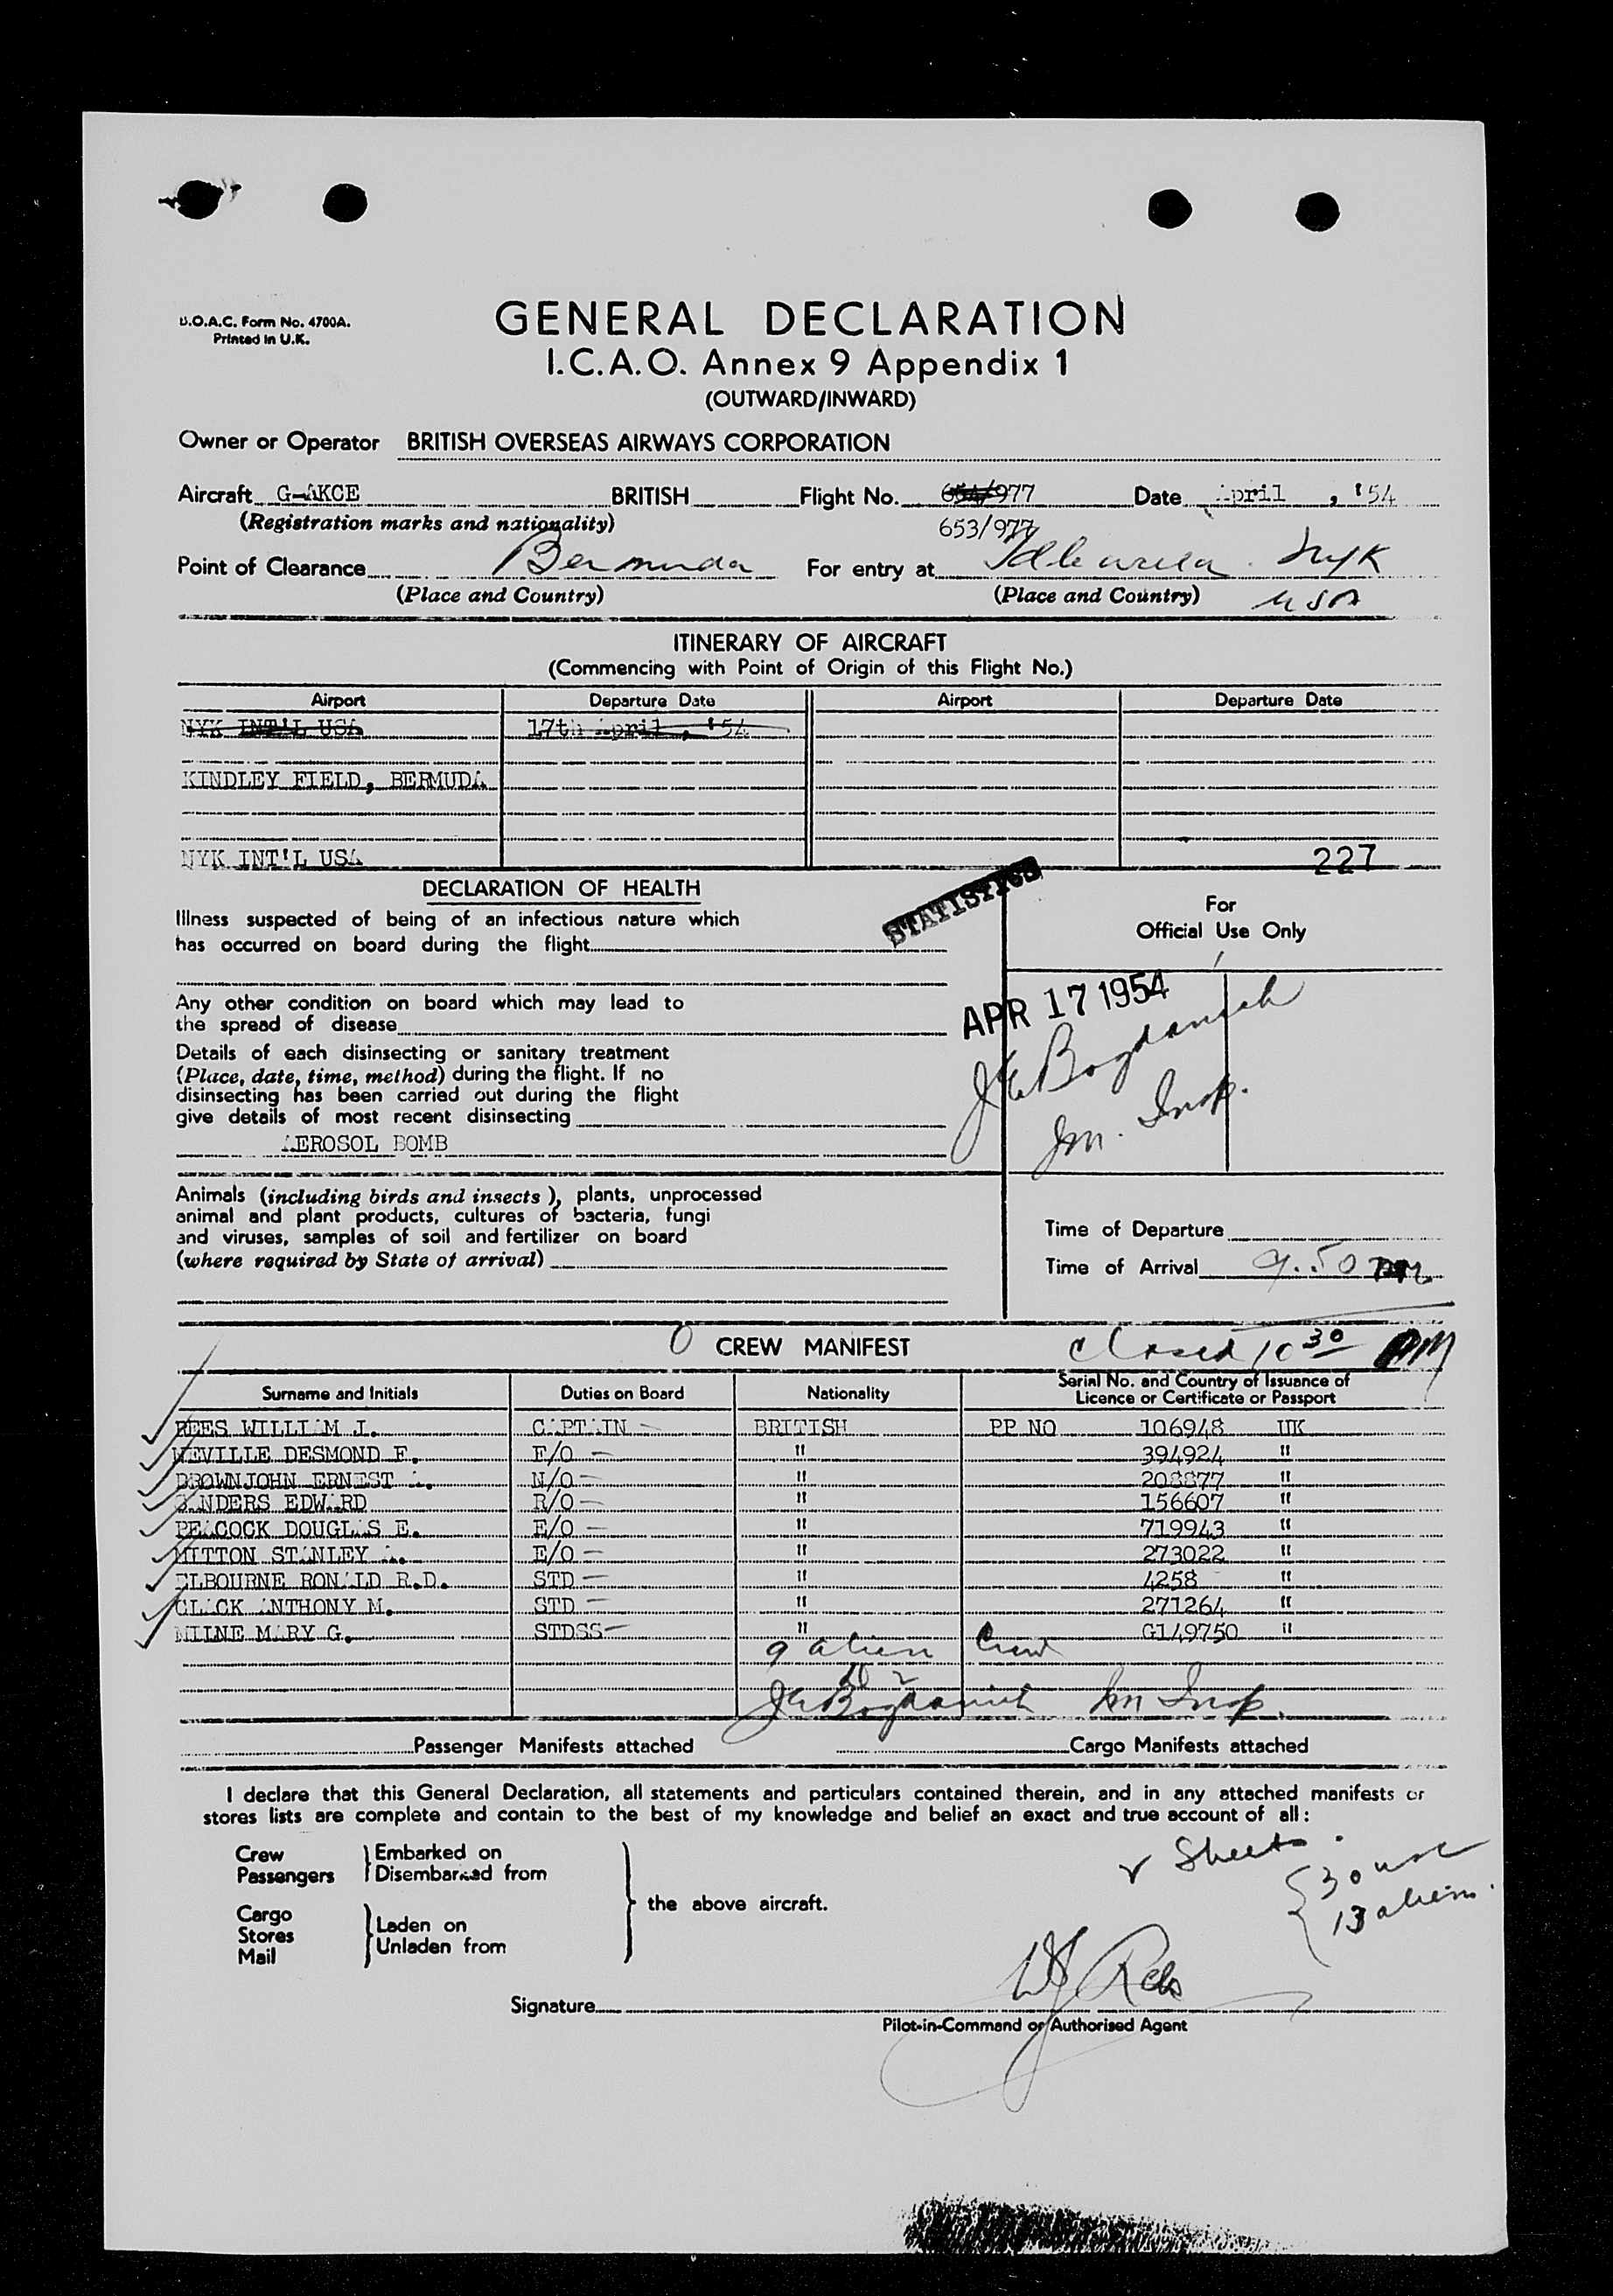 B.O.A.C. Form No. 4700A.
Printed in U.K.
GENERAL DECLARATION
I.C.A.O. Annex 9 Appendix 1
(OUTWARD/INWARD)
Owner or Operator BRITISH OVERSEAS AIRWAYS CORPORATION
Aircraft G-AKCE BRITISH Flight No. 654/977 Date April , '54
(Registration marks and nationality) 653/977
Point of Clearance Bermuda For entry at Idlewild NYK
(Place and Country) (Place and Country) USA
ITINERARY OF AIRCRAFT
(Commencing with Point of Origin of this Flight No.)
Airport Departure Date Airport Departure Date
NYK INT'L USA 17th April , '54
KINDLEY FIELD, BERMUDA
NYK INT'L USA 227
DECLARATION OF HEALTH
STATISTICS
Illness suspected of being of an infectious nature which
has occurred on board during the flight
For
Official Use Only
Any other condition on board which may lead to
the spread of disease
APR 17 1954
Details of each disinsecting or sanitary treatment
(Place, date, time, method) during the flight. If no
disinsecting has been carried out during the flight
give details of most recent disinsecting
AEROSOL BOMB
JG Bogdanich
Im. Insp.
Animals (including birds and insects), plants, unprocessed
animal and plant products, cultures of bacteria, fungi
and viruses, samples of soil and fertilizer on board
(where required by State of arrival)
Time of Departure
Time of Arrival 9.50
O CREW MANIFEST Closed 10 30 AM
Surname and Initials Duties on Board Nationality Serial No. and Country of Issuance of
Licence or Certificate or Passport
REES WILLIAM J. CAPTAIN BRITISH PP NO 106948 UK
NEVILLE DESMOND F. F/O " 394924 "
BROWNJOHN ERNEST A. N/O " 208877 "
SANDERS EDWARD R/O " 156607 "
PEACOCK DOUGLAS E. E/O " 719943 "
MITTON STANLEY A. E/O " 273022 "
ELBOURNE RONALD R.D. STD " 4258 "
CLACK ANTHONY M. STD " 271264 "
MILNE MARY G. STDSS " G149750 "
9 alien Crew
JG Bogdanich Im Insp.
Passenger Manifests attached Cargo Manifests attached
I declare that this General Declaration, all statements and particulars contained therein, and in any attached manifests or
stores lists are complete and contain to the best of my knowledge and belief an exact and true account of all:
Crew Embarked on
Passengers Disembarked from
the above aircraft.
Cargo Laden on
Stores
Mail Unladen from
Sheets
30 usc
13 aliens.
WJ Rees
Signature
Pilot-in-Command or Authorised Agent